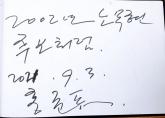 2002년 노무현
후보처럼.
2021. 9. 3.
홍준표